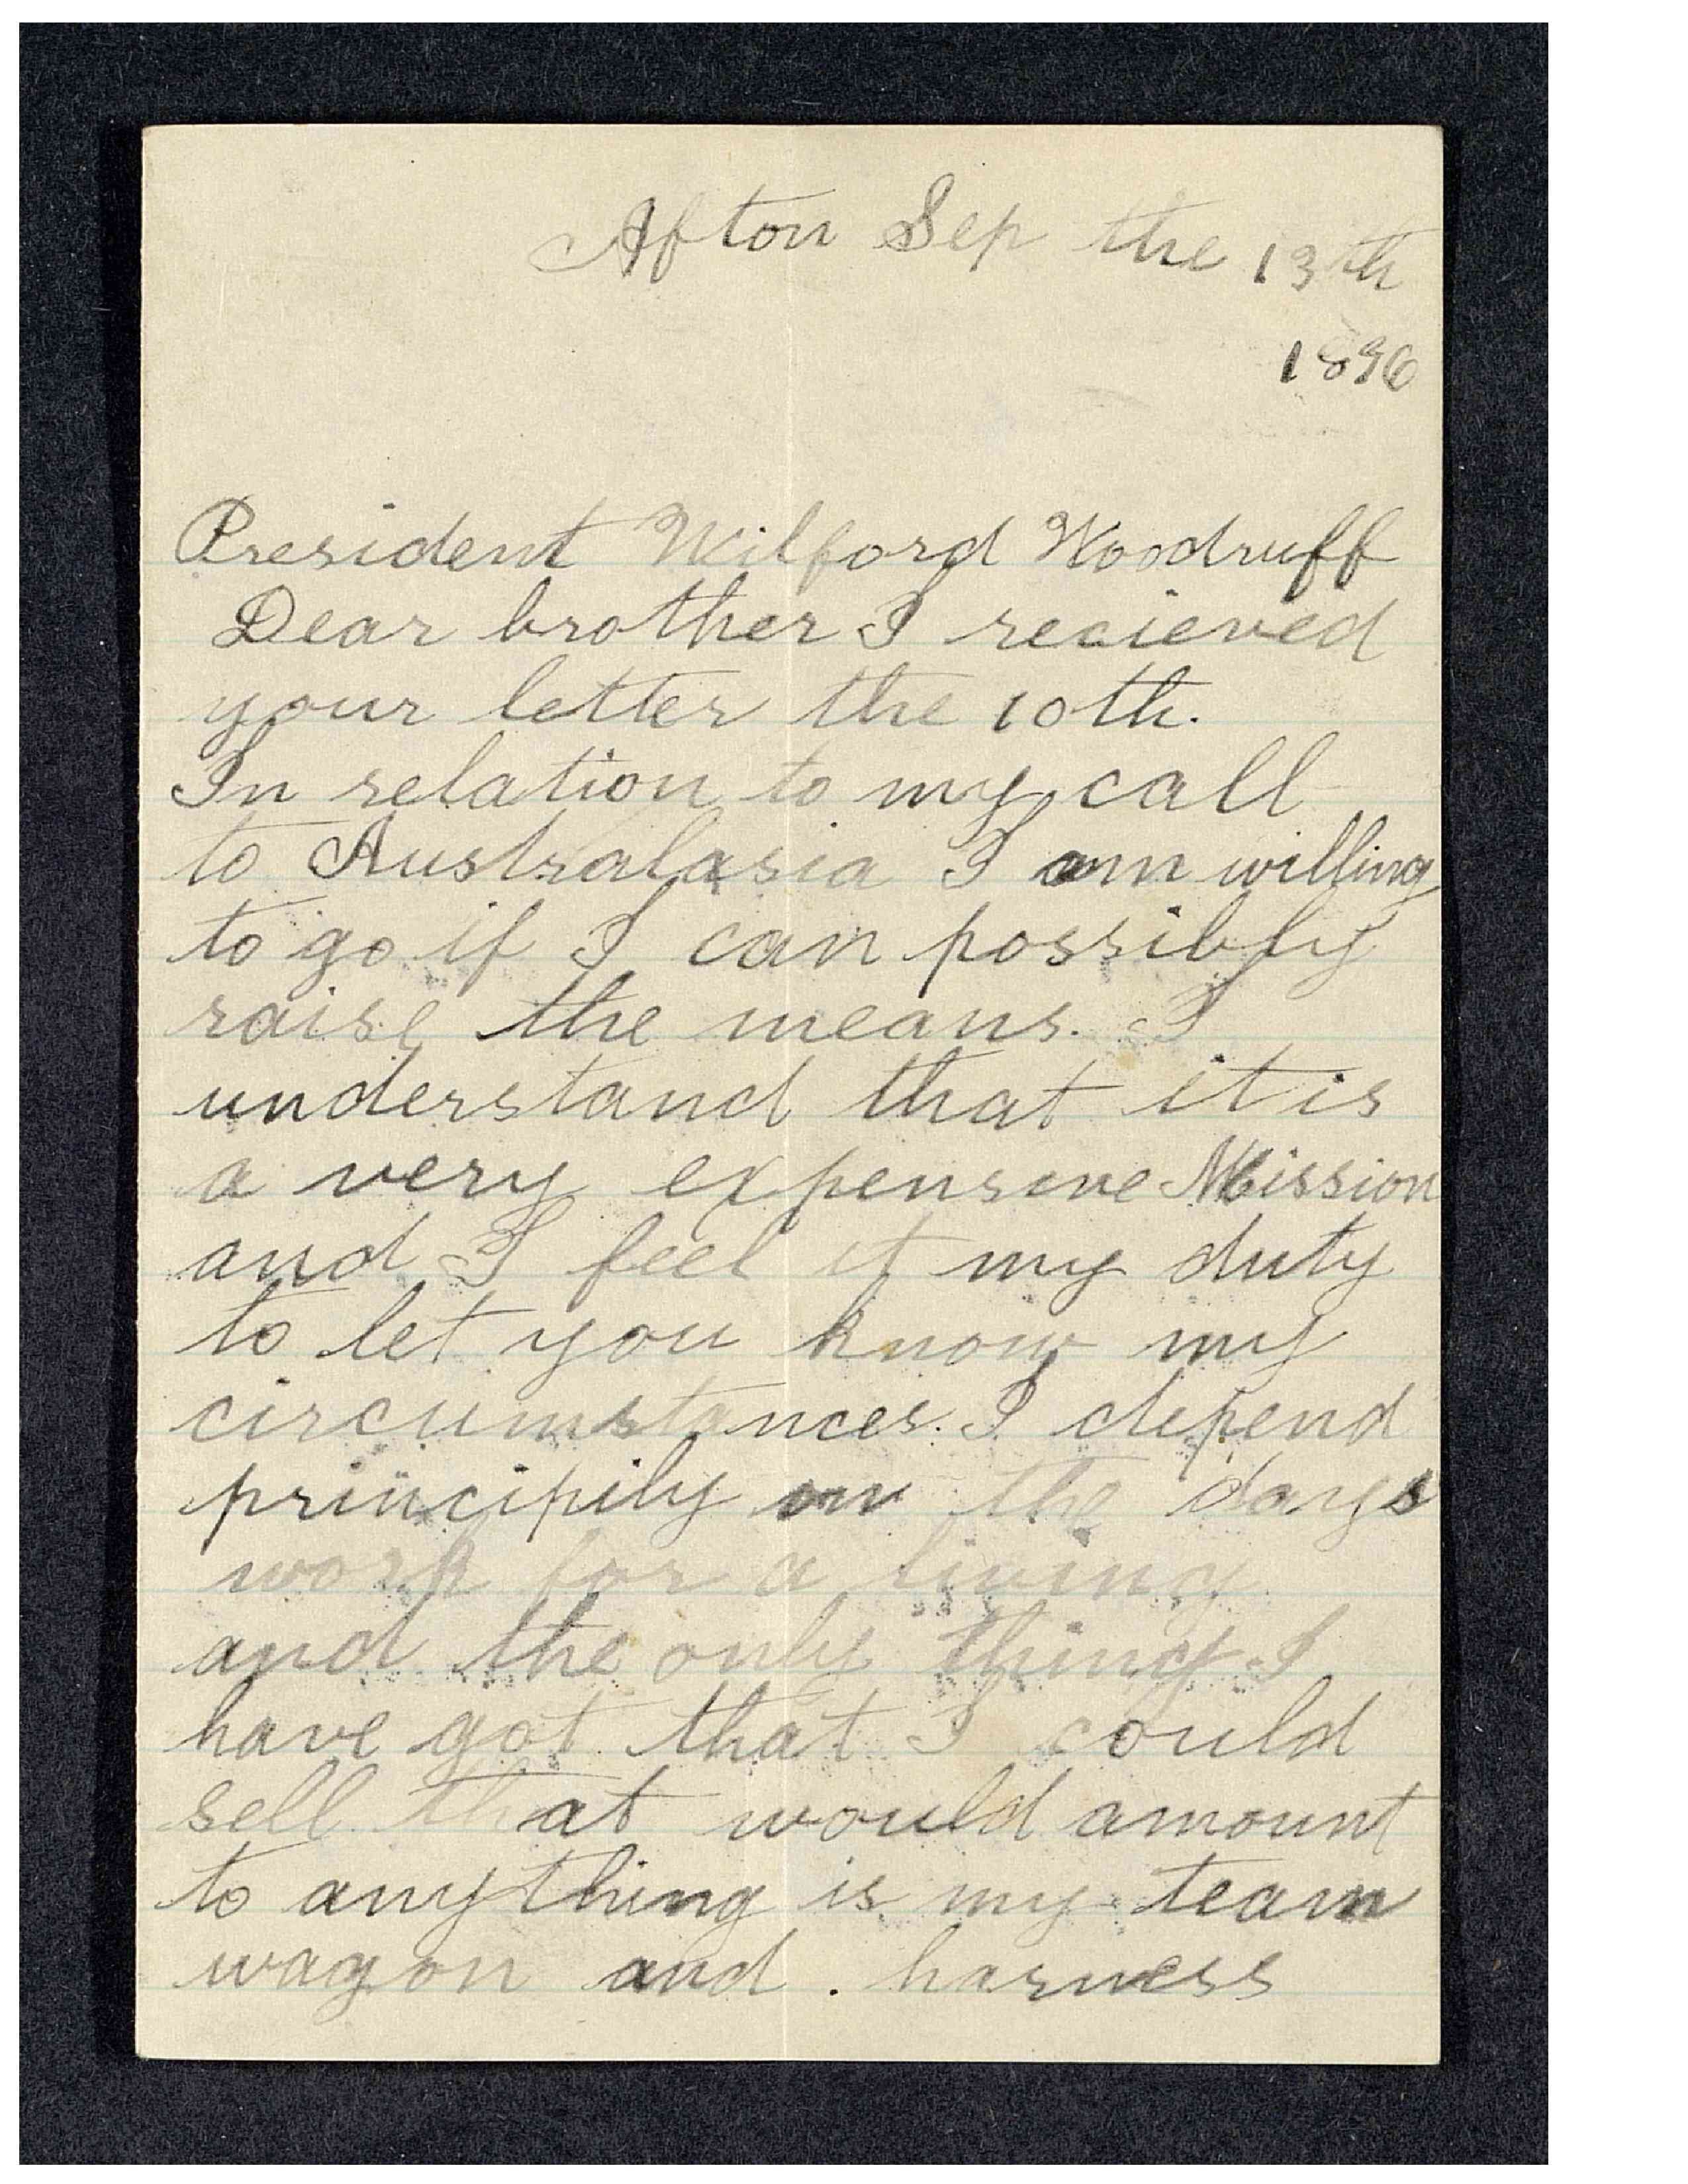 Afton Sep the 13th
1896
President Wilford Woodruff
Dear brother I recieved
your letter the 10th.
In relation to my call
to Australasia I am willing
to go if I can possibly
raise the means. I
understand that it is
a very expensive Mission
and I feel it my duty
to let you know my
circumstances. I depend
principily on the days
work for a living
and the only thing I
have got that I could
sell that would amount
to anything is my team
wagon and . harness